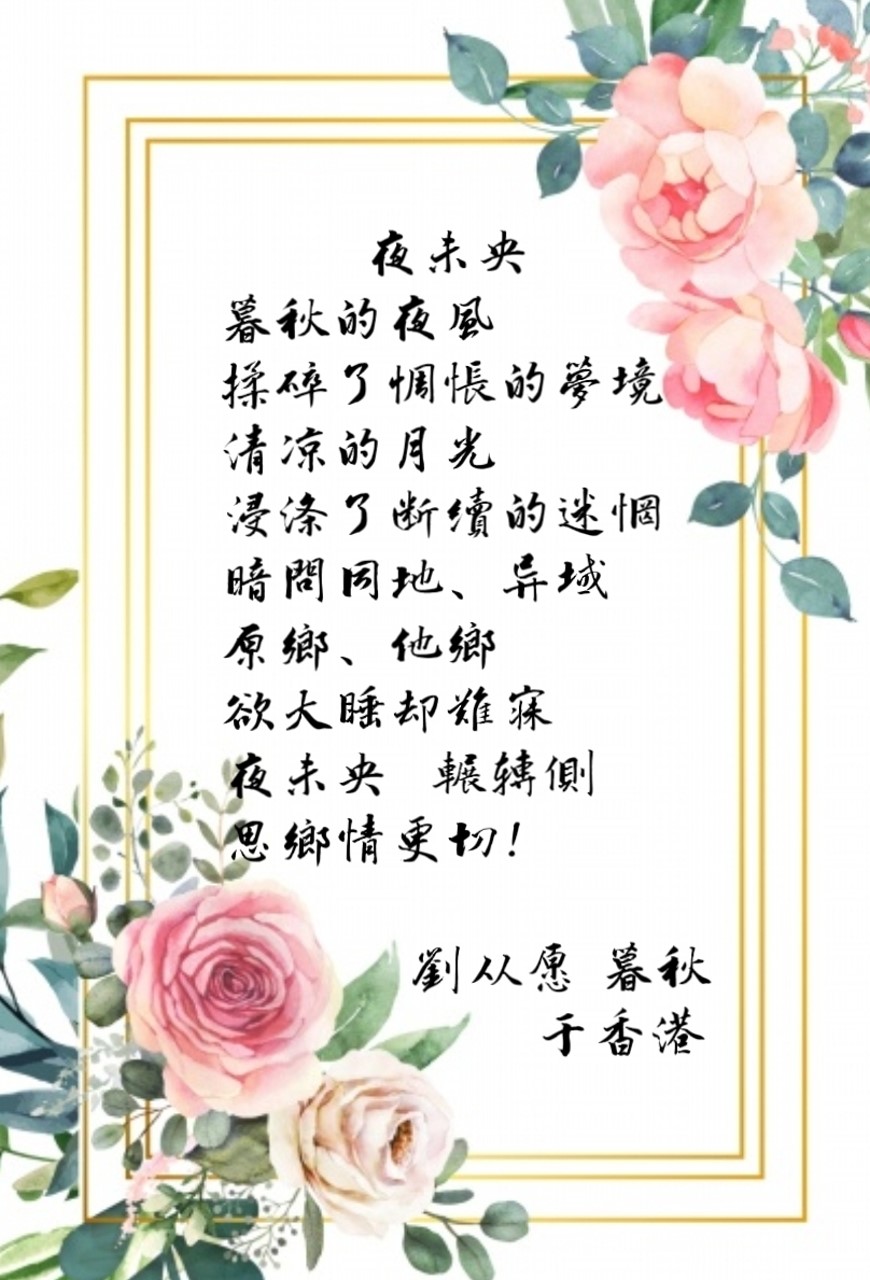 夜未央
暮秋的夜風
揉碎了惆悵的夢境
清凉的月光
浸涤了断續的迷惘
暗問同地、异域
原鄉、他鄉
欲大睡却難寐
夜未央 輾轉側
思鄉情更切!
劉从愿 暮秋
于香港